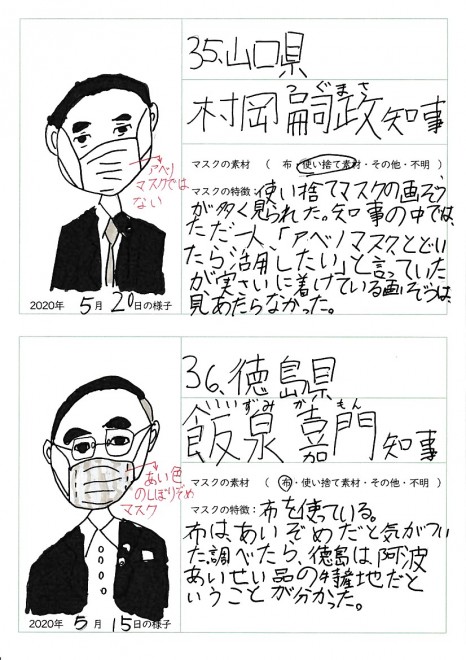 35、山口県
つぐまさ
村岡嗣政知事
マスクの素材 ( 布 ・使い捨て素材・その他・不明 )
マスクの特徴:使い捨てマスクの画ぞう
が多く見られた。知事の中では、
ただ一人、「アベノマスクとどい
たら活用したい」と言っていた
が実さいに着けている画ぞうは、
見あたらなかった。
アベノ
マスクでは
ない
2020年 5月 20日の様子
36、徳島県
いいずみ か もん
飯泉 嘉門知事
マスクの素材 ( 布・使い捨て素材・その他・不明 )
マスクの特徴:布を使っている。
布は、あいぞめだと気がつい
た。調べたら、徳島は、阿波
あいせい品の特産地だと
いうことが分かった。
あい色
のしぼりぞめ
マスク
2020年 5月 15日の様子